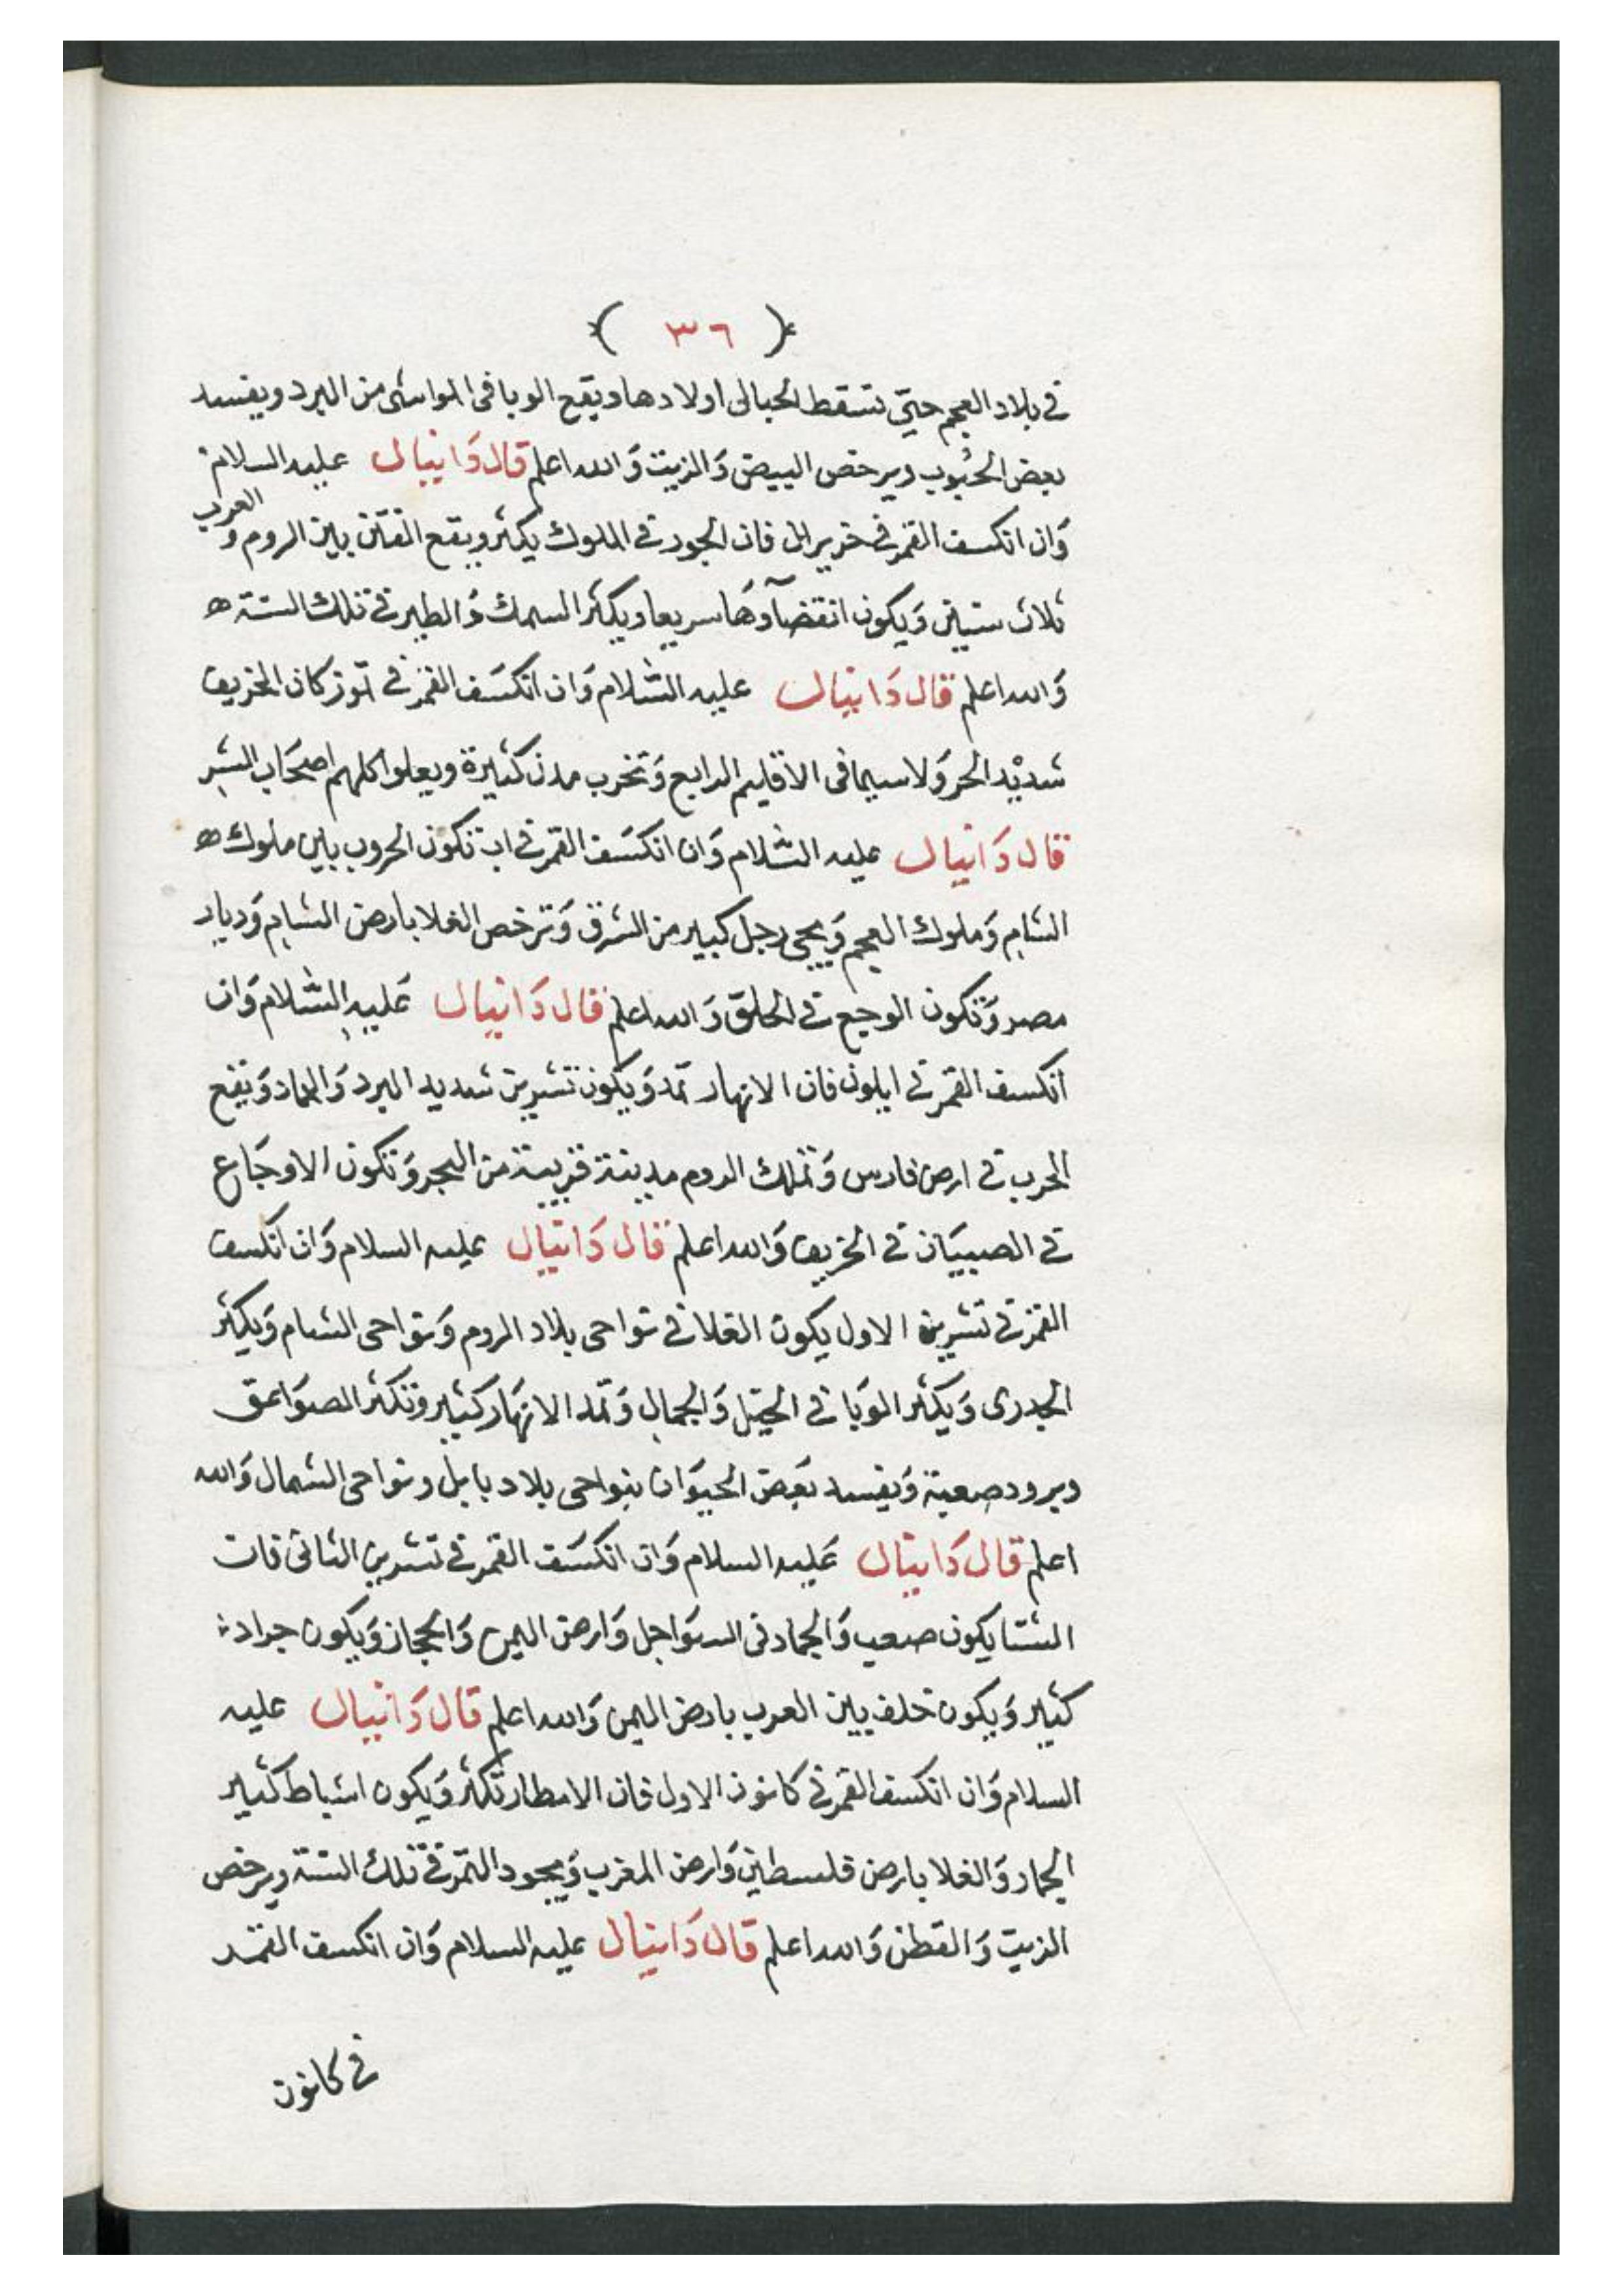 ( ٣٦ )
في بلاد العجم حتي تسقط الحبالى اولادها ويقع الوبا فى المواشي من البرد ويفسد
بعض الحبوب ويرخص البيض وَالزيت وَالله اعلم قال دَانيال عليه السلام
وَان انكسف القمر في حزيران فان الجود في الملوك يكثر ويقع الفتن بين الروم و العرب
ثلاث سنين وَيكون انقضآوهَا سريعا ويكثر السمك وَالطير في تلك السنة ه
وَالله اعلم قال دَانيال عليه السَّلام وَان انكسَف القمر في تموز كان الخريف
شديْد الحر وَلا سيما فى الاقليم الرابع وَتخرب مدن كثيرة ويعلوا كلهم اصحَاب الشر
قال دَانيال عليه السَّلام وَان انكسَف القمر في اب تكون الحروب بين ملوك ه
الشام وَملوك العجم وَيجي رجل كبير من الشرق وَترخص الغلا بارض الشام وَديار
مصر وَتكون الوجع في الحلق وَالله اعلم قال دَانيال عَليه السَّلام وَان
انكسف القمر في ايلون فان الانهار تمد وَيكون تشرين شديد البرد وَالجماد وَيقع
الحرب في ارض فارس وَتملك الروم مدينة قريبة من البحر وَتكون الاوجَاع
في الصبيَان في الخريف وَالله اعلم قال دَانيال عليه السلام وَان انكسف
القمر في تشرين الاول يكون الغلا في نواحى بلاد الروم وَنواحى الشام وَيكثر
الجدرى وَيكثر الوَبا في الخيل وَالجمال وَتمد الانهَار كثير وَتكثر الصوَاعق
وبرود صعبة وَيفسد بَعض الحيوَان بنواحى بلاد بابل ونواحى الشمال وَالله
اعلم قال دَانيال عَليه السلام وَان انكسَف القمر في تشرين الثانى فان
الشتا يكون صعب وَالجماد فى السوَاحل وَارض اليمن وَالحجاز وَيكون جراد
كثير وَيكون خلف بين العرب بارض اليمن وَالله اعلم قال دَانيال عليه
السلام وَان انكسف القمر في كانون الاول فان الامطار تكثر وَيكون اشباط كثير
الجماد وَالغلا بارض فلسطين وَارض المغرب وَيجود التمر في تلك السنة ويرخص
الزيت وَالقطن وَالله اعلم قال دَانيال عليه السلام وَان انكسف القمر
في كانون